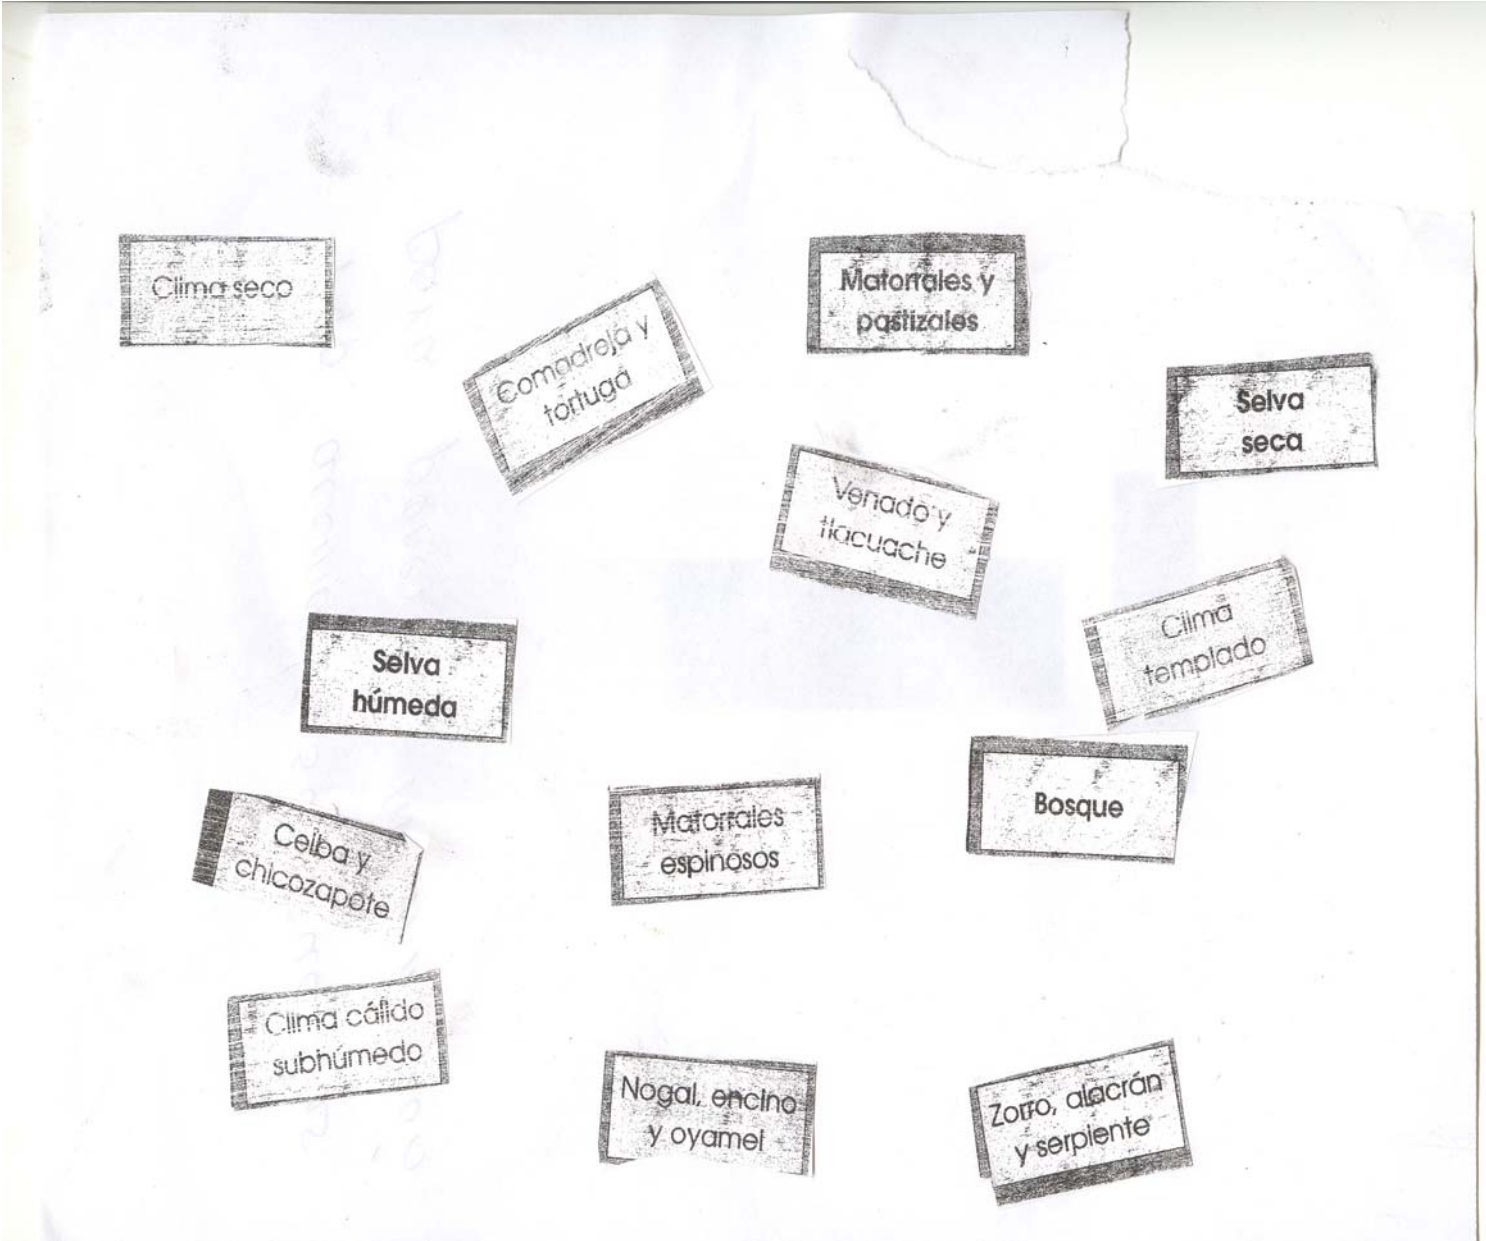 Clima seco
Matorrales y
pastizales
Comadreja y
tortuga
Selva
seca
Venado y
tlacuache
Clima
templado
Selva
húmeda
Matorrales
espinosos
Bosque
Ceiba y
chicozapote
Clima cálido
subhúmedo
Nogal, encino
y oyamel
Zorro, alacrán
y serpiente